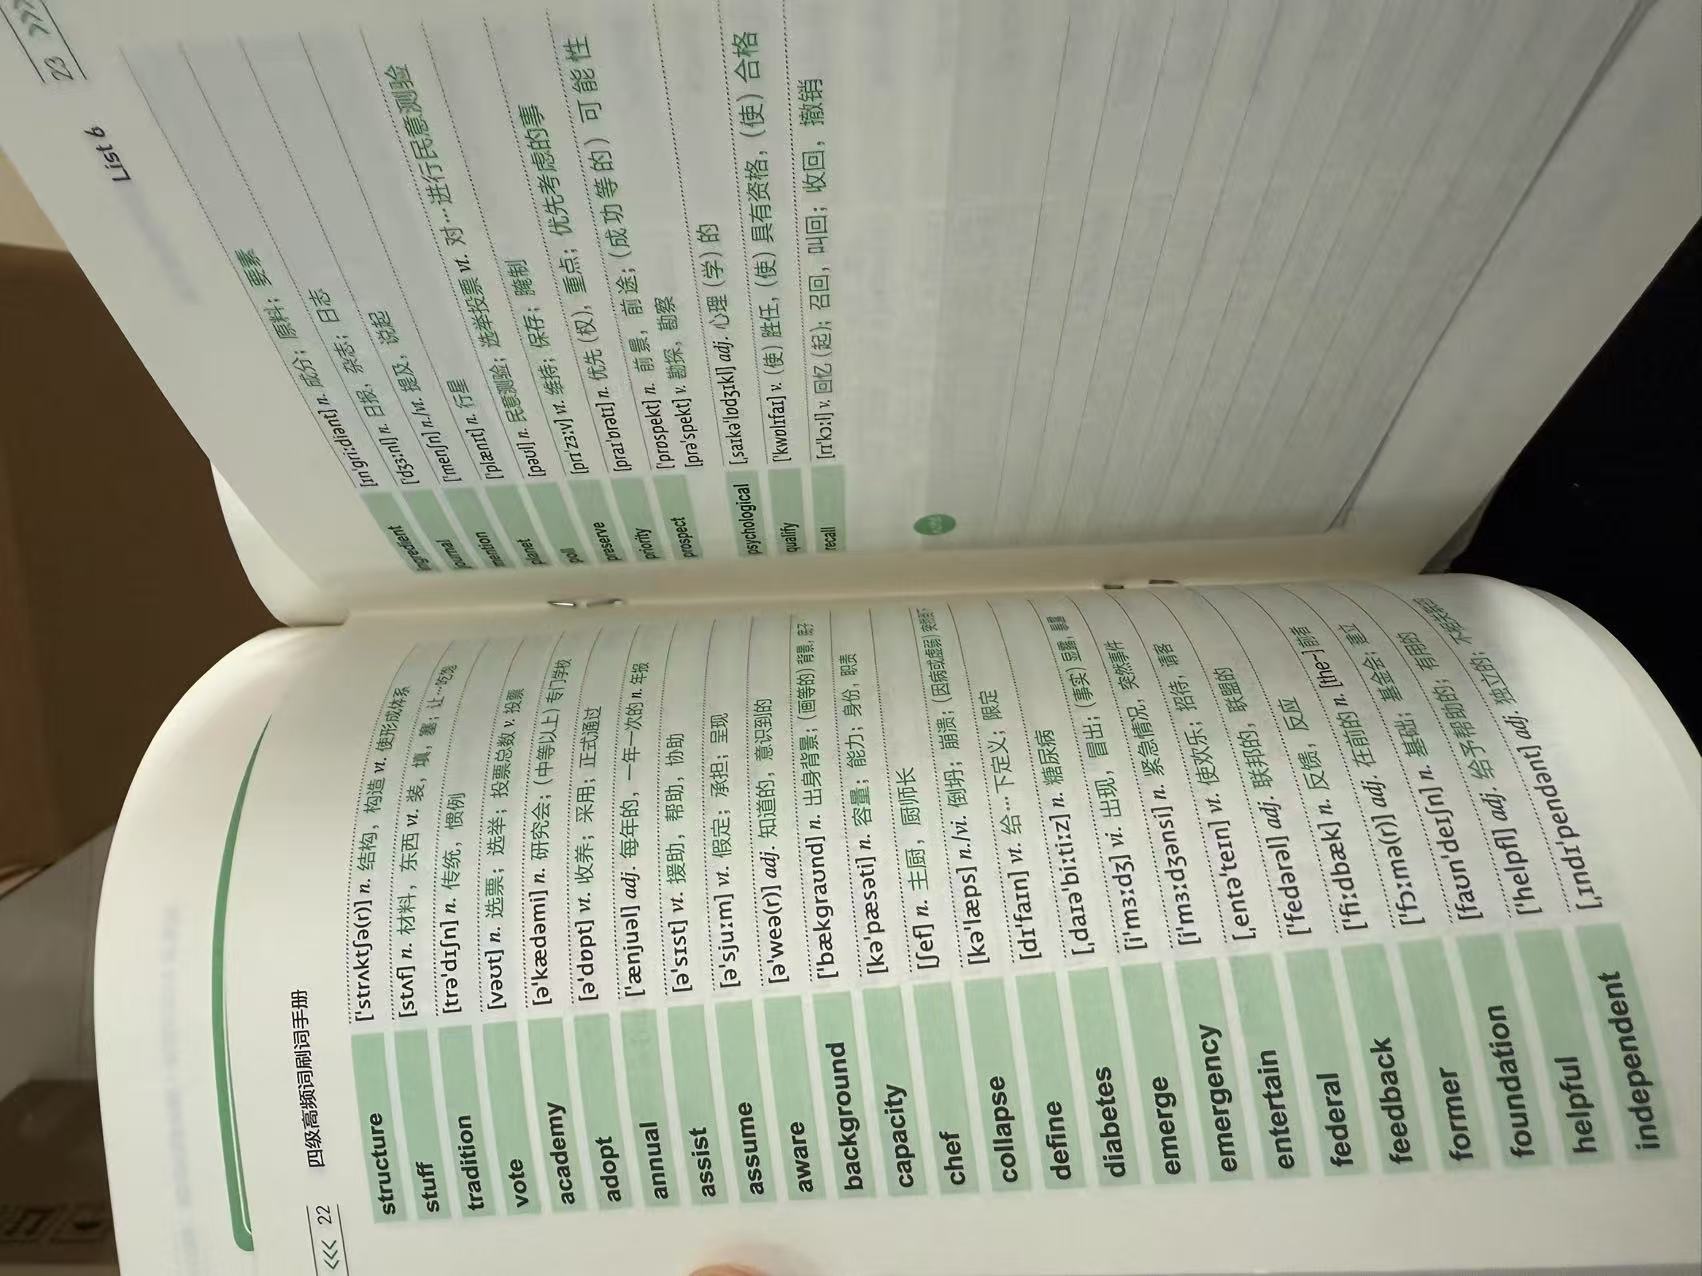 <<< 22 四级高频词刷词手册
structure ['strʌktʃə(r)] n. 结构，构造 vt. 使形成体系
stuff [stʌf] n. 材料，东西 vt. 装，填，塞；让…吃饱
tradition [trə'dɪʃn] n. 传统，惯例
vote [vəʊt] n. 选票；选举；投票总数 v. 投票
academy [ə'kædəmi] n. 研究会；（中等以上）专门学校
adopt [ə'dɒpt] vt. 收养；采用；正式通过
annual ['ænjuəl] adj. 每年的，一年一次的 n. 年报
assist [ə'sɪst] vt. 援助，帮助，协助
assume [ə'sjuːm] vt. 假定；承担；呈现
aware [ə'weə(r)] adj. 知道的，意识到的
background ['bækgraʊnd] n. 出身背景；（画等的）背景，底子
capacity [kə'pæsəti] n. 容量；能力；身份，职责
chef [ʃef] n. 主厨，厨师长
collapse [kə'læps] n./vi. 倒坍；崩溃；（因病或虚弱）突然倒下
define [dɪ'faɪn] vt. 给…下定义；限定
diabetes [ˌdaɪə'biːtiːz] n. 糖尿病
emerge [i'mɜːdʒ] vi. 出现，冒出；（事实）显露，暴露
emergency [i'mɜːdʒənsi] n. 紧急情况，突然事件
entertain [ˌentə'teɪn] vt. 使欢乐；招待，请客
federal ['fedərəl] adj. 联邦的，联盟的
feedback ['fiːdbæk] n. 反馈，反应
former ['fɔːmə(r)] adj. 在前的 n. [the-] 前者
foundation [faʊn'deɪʃn] n. 基础；基金会；建立
helpful ['helpfl] adj. 给予帮助的；有用的
independent [ˌɪndɪ'pendənt] adj. 独立的；
List 6 23 >>>
ingredient [ɪn'griːdiənt] n. 成分；原料；要素
journal ['dʒɜːnl] n. 日报，杂志；日志
mention ['menʃn] n./vt. 提及，说起
planet ['plænɪt] n. 行星
poll [pəʊl] n. 民意测验；选举投票 vt. 对…进行民意测验
preserve [prɪ'zɜːv] vt. 维持；保存；腌制
priority [praɪ'ɒrəti] n. 优先（权），重点；优先考虑的事
prospect ['prɒspekt] n. 前景，前途；（成功等的）可能性
[prə'spekt] v. 勘探，勘察
psychological [ˌsaɪkə'lɒdʒɪkl] adj. 心理（学）的
qualify ['kwɒlɪfaɪ] v.（使）胜任，（使）具有资格，（使）合格
recall [rɪ'kɔːl] v. 回忆（起）；召回，叫回；收回，撤销